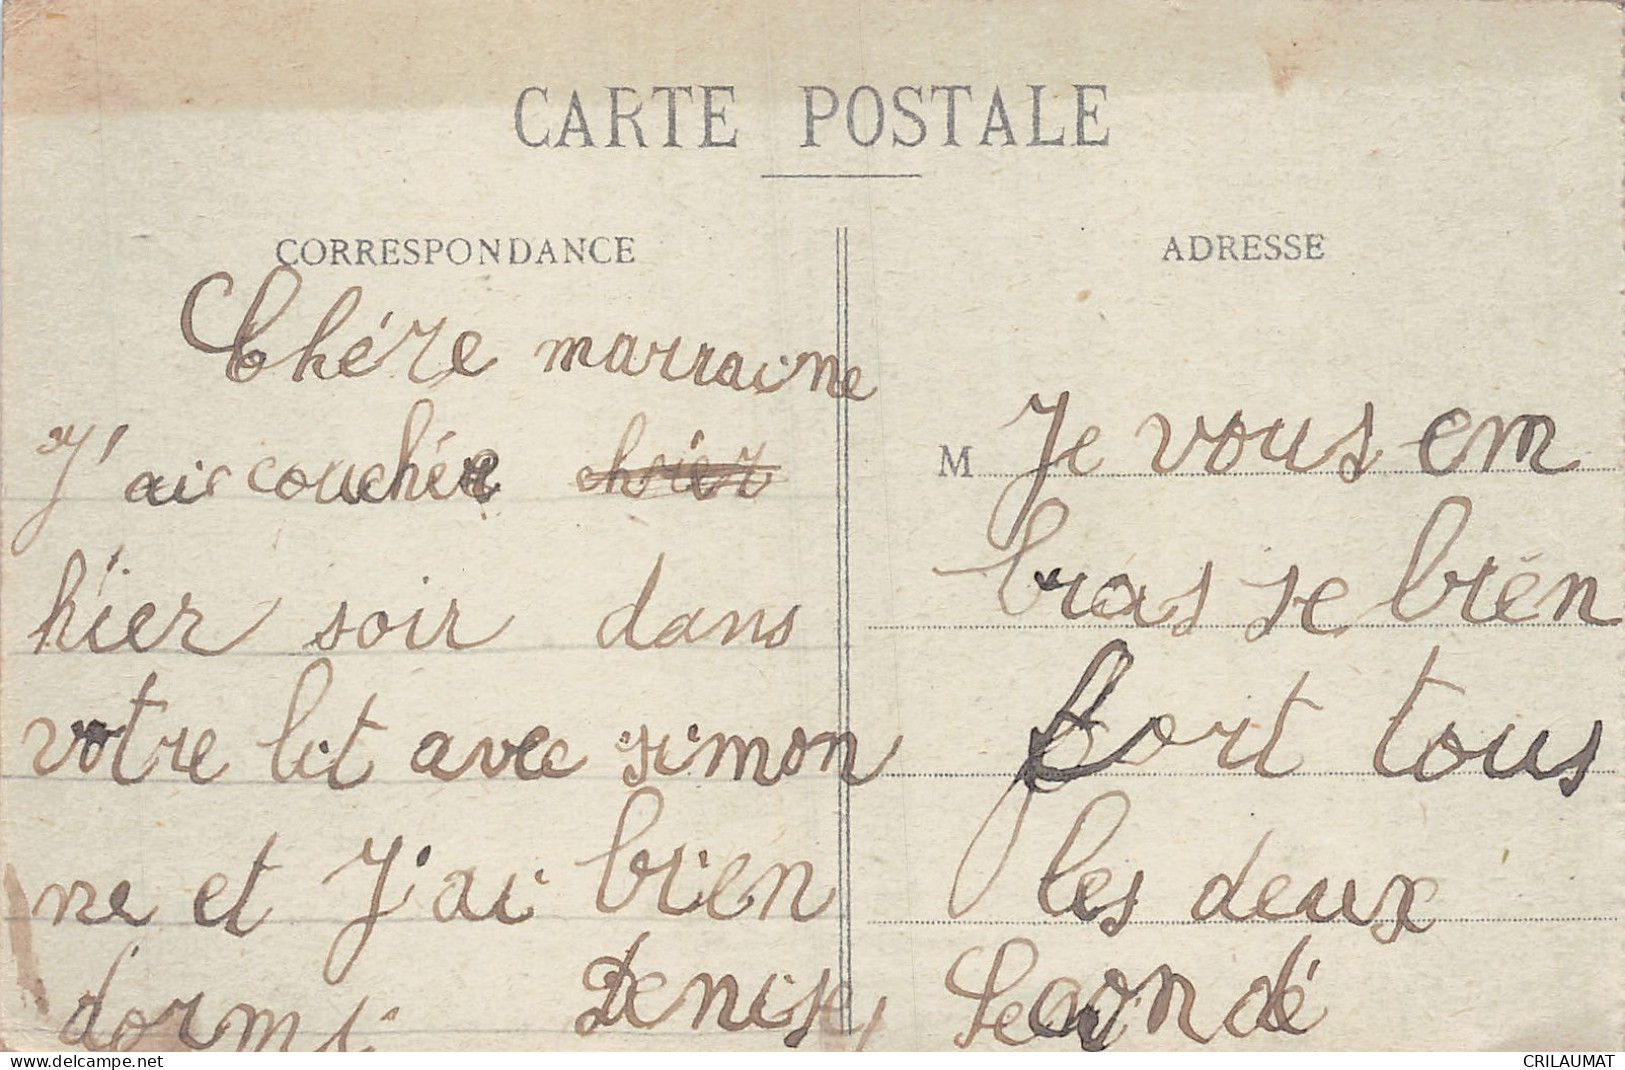 CARTE POSTALE
CORRESPONDANCE
Chére marraine
J'ai couchée
hier soir dans
votre lit avec simon
ne et J'ai bien
dormi Denise
ADRESSE
M Je vous em
bras se bien
fort tous
les deux
delcampe.net
CRILAUMAT